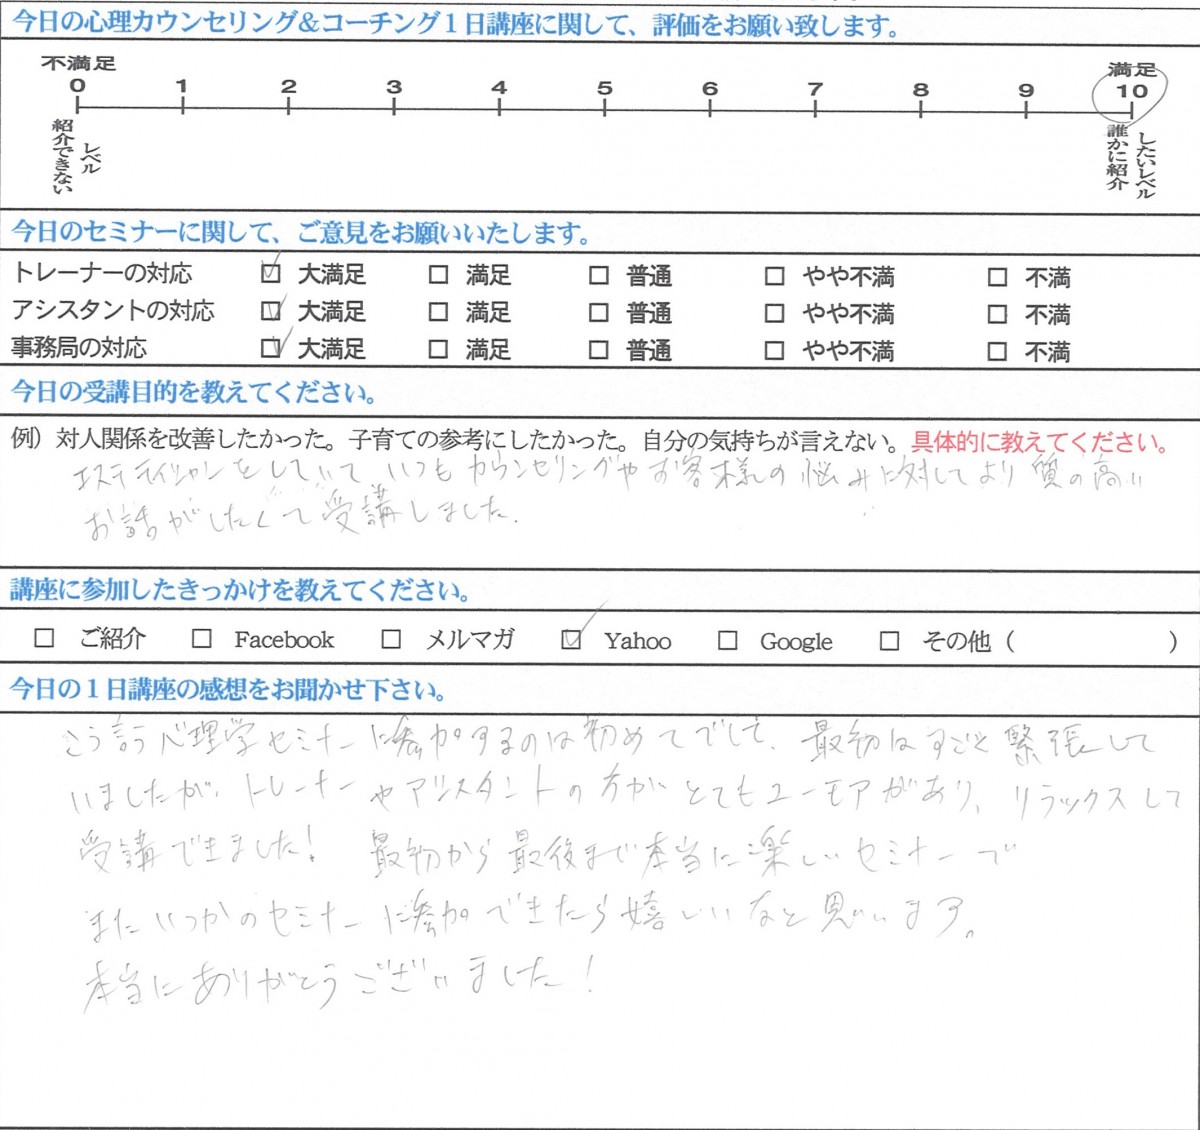 今日の心理カウンセリング＆コーチング１日講座に関して、評価をお願い致します。
不満足 満足
0 1 2 3 4 5 6 7 8 9 10
紹介できない
レベル
誰かに紹介
したいレベル
今日のセミナーに関して、ご意見をお願いいたします。
トレーナーの対応 ☑ 大満足 □ 満足 □ 普通 □ やや不満 □ 不満
アシスタントの対応 ☑ 大満足 □ 満足 □ 普通 □ やや不満 □ 不満
事務局の対応 ☑ 大満足 □ 満足 □ 普通 □ やや不満 □ 不満
今日の受講目的を教えてください。
例）対人関係を改善したかった。子育ての参考にしたかった。自分の気持ちが言えない。具体的に教えてください。
エステティシャンをしていて いつも カウンセリングやお客様の 悩みに対してより 質の高い
お話がしたくて受講しました.
講座に参加したきっかけを教えてください。
□ ご紹介 □ Facebook □ メルマガ ☑ Yahoo □ Google □ その他（ ）
今日の１日講座の感想をお聞かせ下さい。
こう言う心理学セミナーに参加するのは初めてでして、最初はすごく緊張して
いましたが、トレーナーやアシスタントの方がとてもユーモアがあり、リラックスして
受講できました! 最初から最後まで本当に楽しいセミナーで
またいつかのセミナーに参加できたら嬉しいなと思います。
本当にありがとうございました!